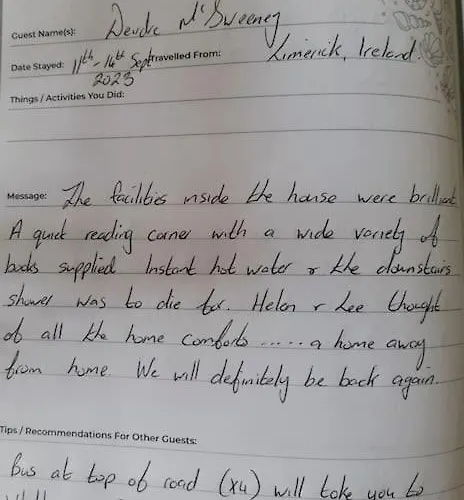 Guest Name(s): Deirdre McSweeney
Date Stayed: 11th - 14th Sept Travelled From: Limerick, Ireland.
2023
Things / Activities You Did:
Message: The facilities inside the house were brilliant
A quiet reading corner with a wide variety of
books supplied Instant hot water & the downstairs
shower was to die for. Helen & Lee thought
of all the home comforts ..... a home away
from home We will definitely be back again.
Tips / Recommendations For Other Guests:
Bus at top of road (x4) will take you to